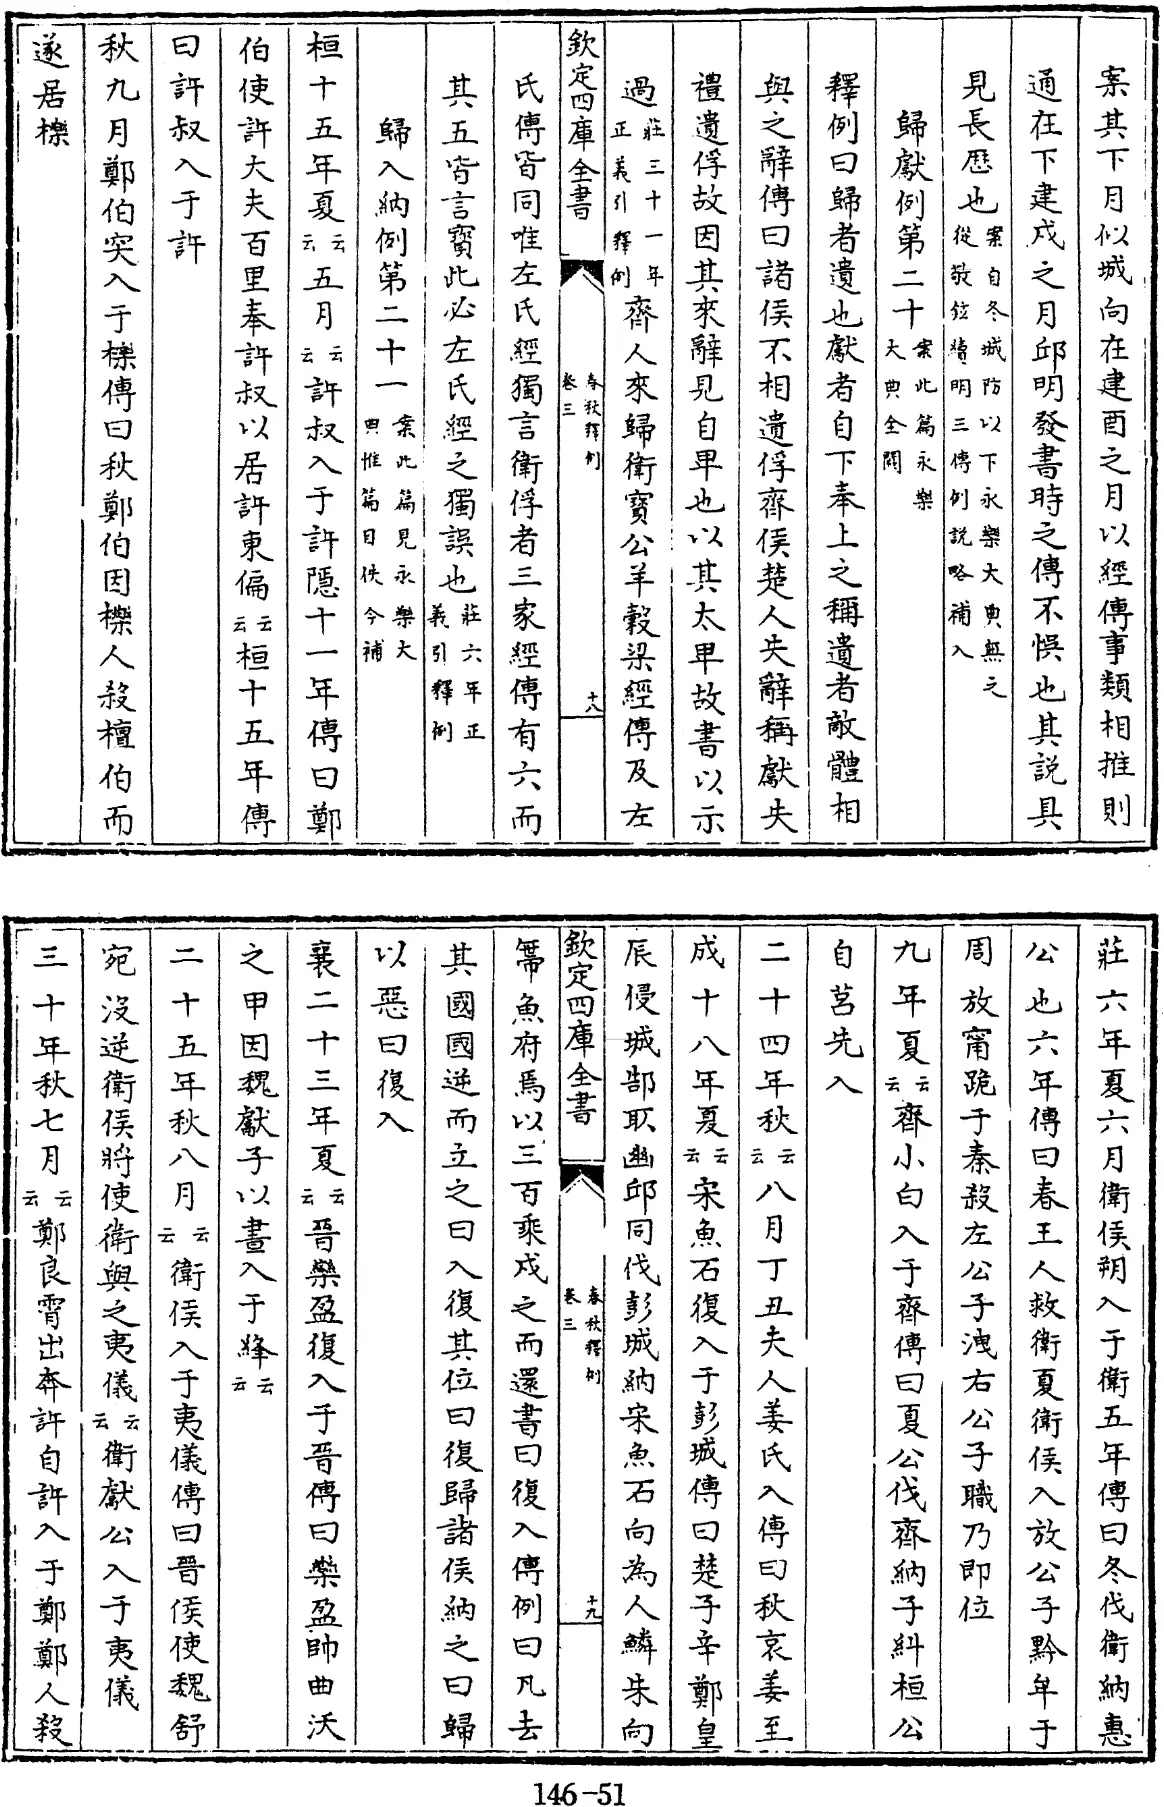 案其下月似城向在建酉之月以經傳事類相推則
通在下建戌之月邱明發書時之傳不悞也其説具
見長厯也案自冬城防以下永樂大典無之從敬鉉續明三傳例説略補入
歸獻例第二十案此篇永樂大典全闕
釋例曰歸者遺也獻者自下奉上之稱遺者敵體相
與之辭傳曰諸侯不相遺俘齊侯楚人失辭稱獻失
禮遺俘故因其來辭見自卑也以其太卑故書以示
過莊三十一年正義引釋例齊人來歸衛寳公羊穀梁經傳及左
欽定四庫全書
春秋釋例
卷三
十八
氏傳皆同唯左氏經獨言衛俘者三家經傳有六而
其五皆言寳此必左氏經之獨誤也莊六年正義引釋例
歸入納例第二十一案此篇見永樂大典惟篇目佚今補
桓十五年夏云云五月云云許叔入于許隱十一年傳曰鄭
伯使許大夫百里奉許叔以居許東偏云云桓十五年傳
曰許叔入于許
秋九月鄭伯突入于櫟傳曰秋鄭伯因櫟人殺檀伯而
遂居櫟
莊六年夏六月衛侯朔入于衛五年傳曰冬伐衛納惠
公也六年傳曰春王人救衛夏衛侯入放公子黔牟于
周放甯跪于秦殺左公子洩右公子職乃即位
九年夏云云齊小白入于齊傳曰夏公伐齊納子糾桓公
自莒先入
二十四年秋云云八月丁丑夫人姜氏入傳曰秋哀姜至
成十八年夏云云宋魚石復入于彭城傳曰楚子辛鄭皇
辰侵城郜取幽邱同伐彭城納宋魚石向為人鱗朱向
欽定四庫全書
春秋釋例
卷三
十九
帶魚府焉以三百乘戍之而還書曰復入傳例曰凡去
其國國逆而立之曰入復其位曰復歸諸侯納之曰歸
以惡曰復入
襄二十三年夏云云晉欒盈復入于晉傳曰欒盈帥曲沃
之甲因魏獻子以晝入于絳云云
二十五年秋八月云云衛侯入于夷儀傳曰晉侯使魏舒
宛沒逆衛侯將使衛與之夷儀云云衛獻公入于夷儀
三十年秋七月云云鄭良霄出奔許自許入于鄭鄭人殺
146-51